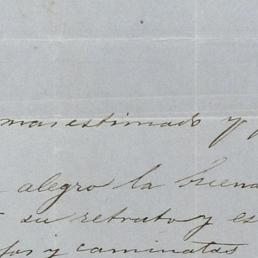 mas estimado y
alegro la buena
su retrato y es
y caminatas